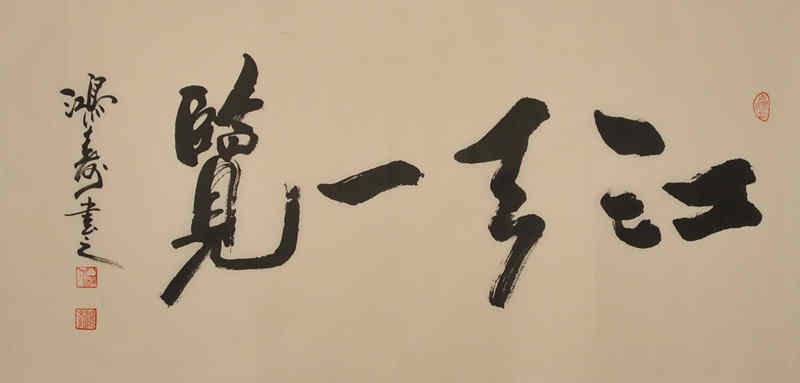 江天一覽
鴻壽書之